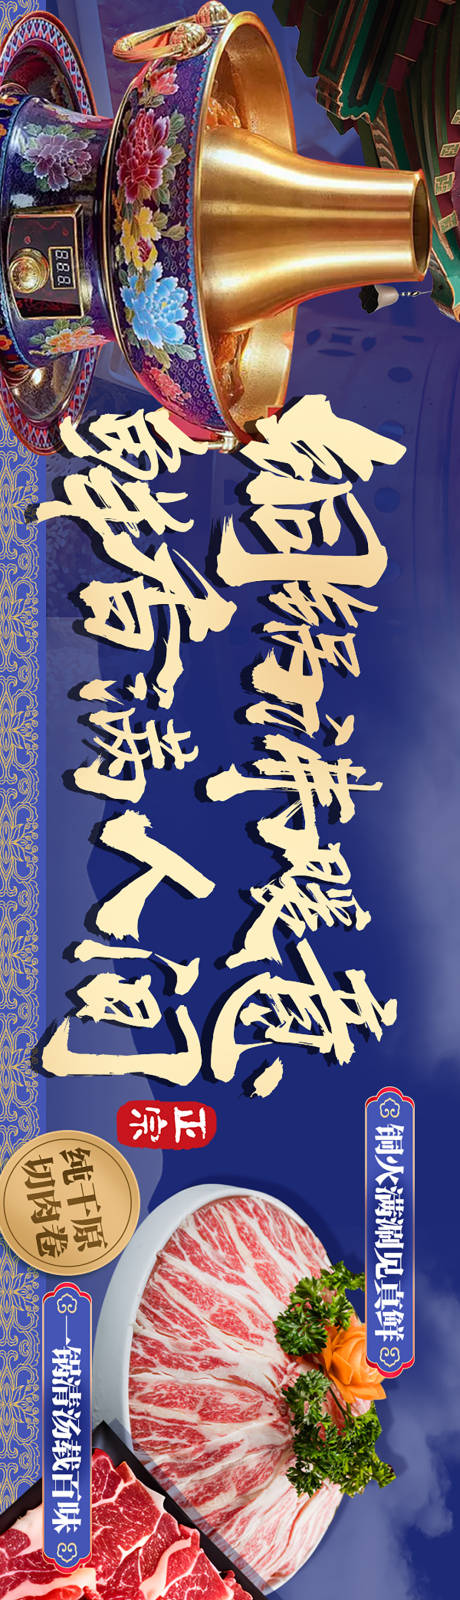 铜锅沸暖意
鲜香满人间
正宗
铜火满涮见真鲜
纯干原
切肉卷
一锅清汤载百味
888